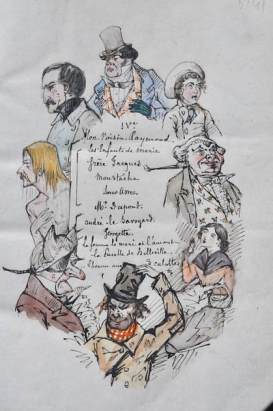 IVe
Mon Voisin Raymond.
les Enfants de Marie
frère Jacques
Moustache
Sans-
Mr Dupont.
andré le Savoyard
Georgette
la femme le mari et l'amant
la Pucelle de Belleville
un 3 culottes